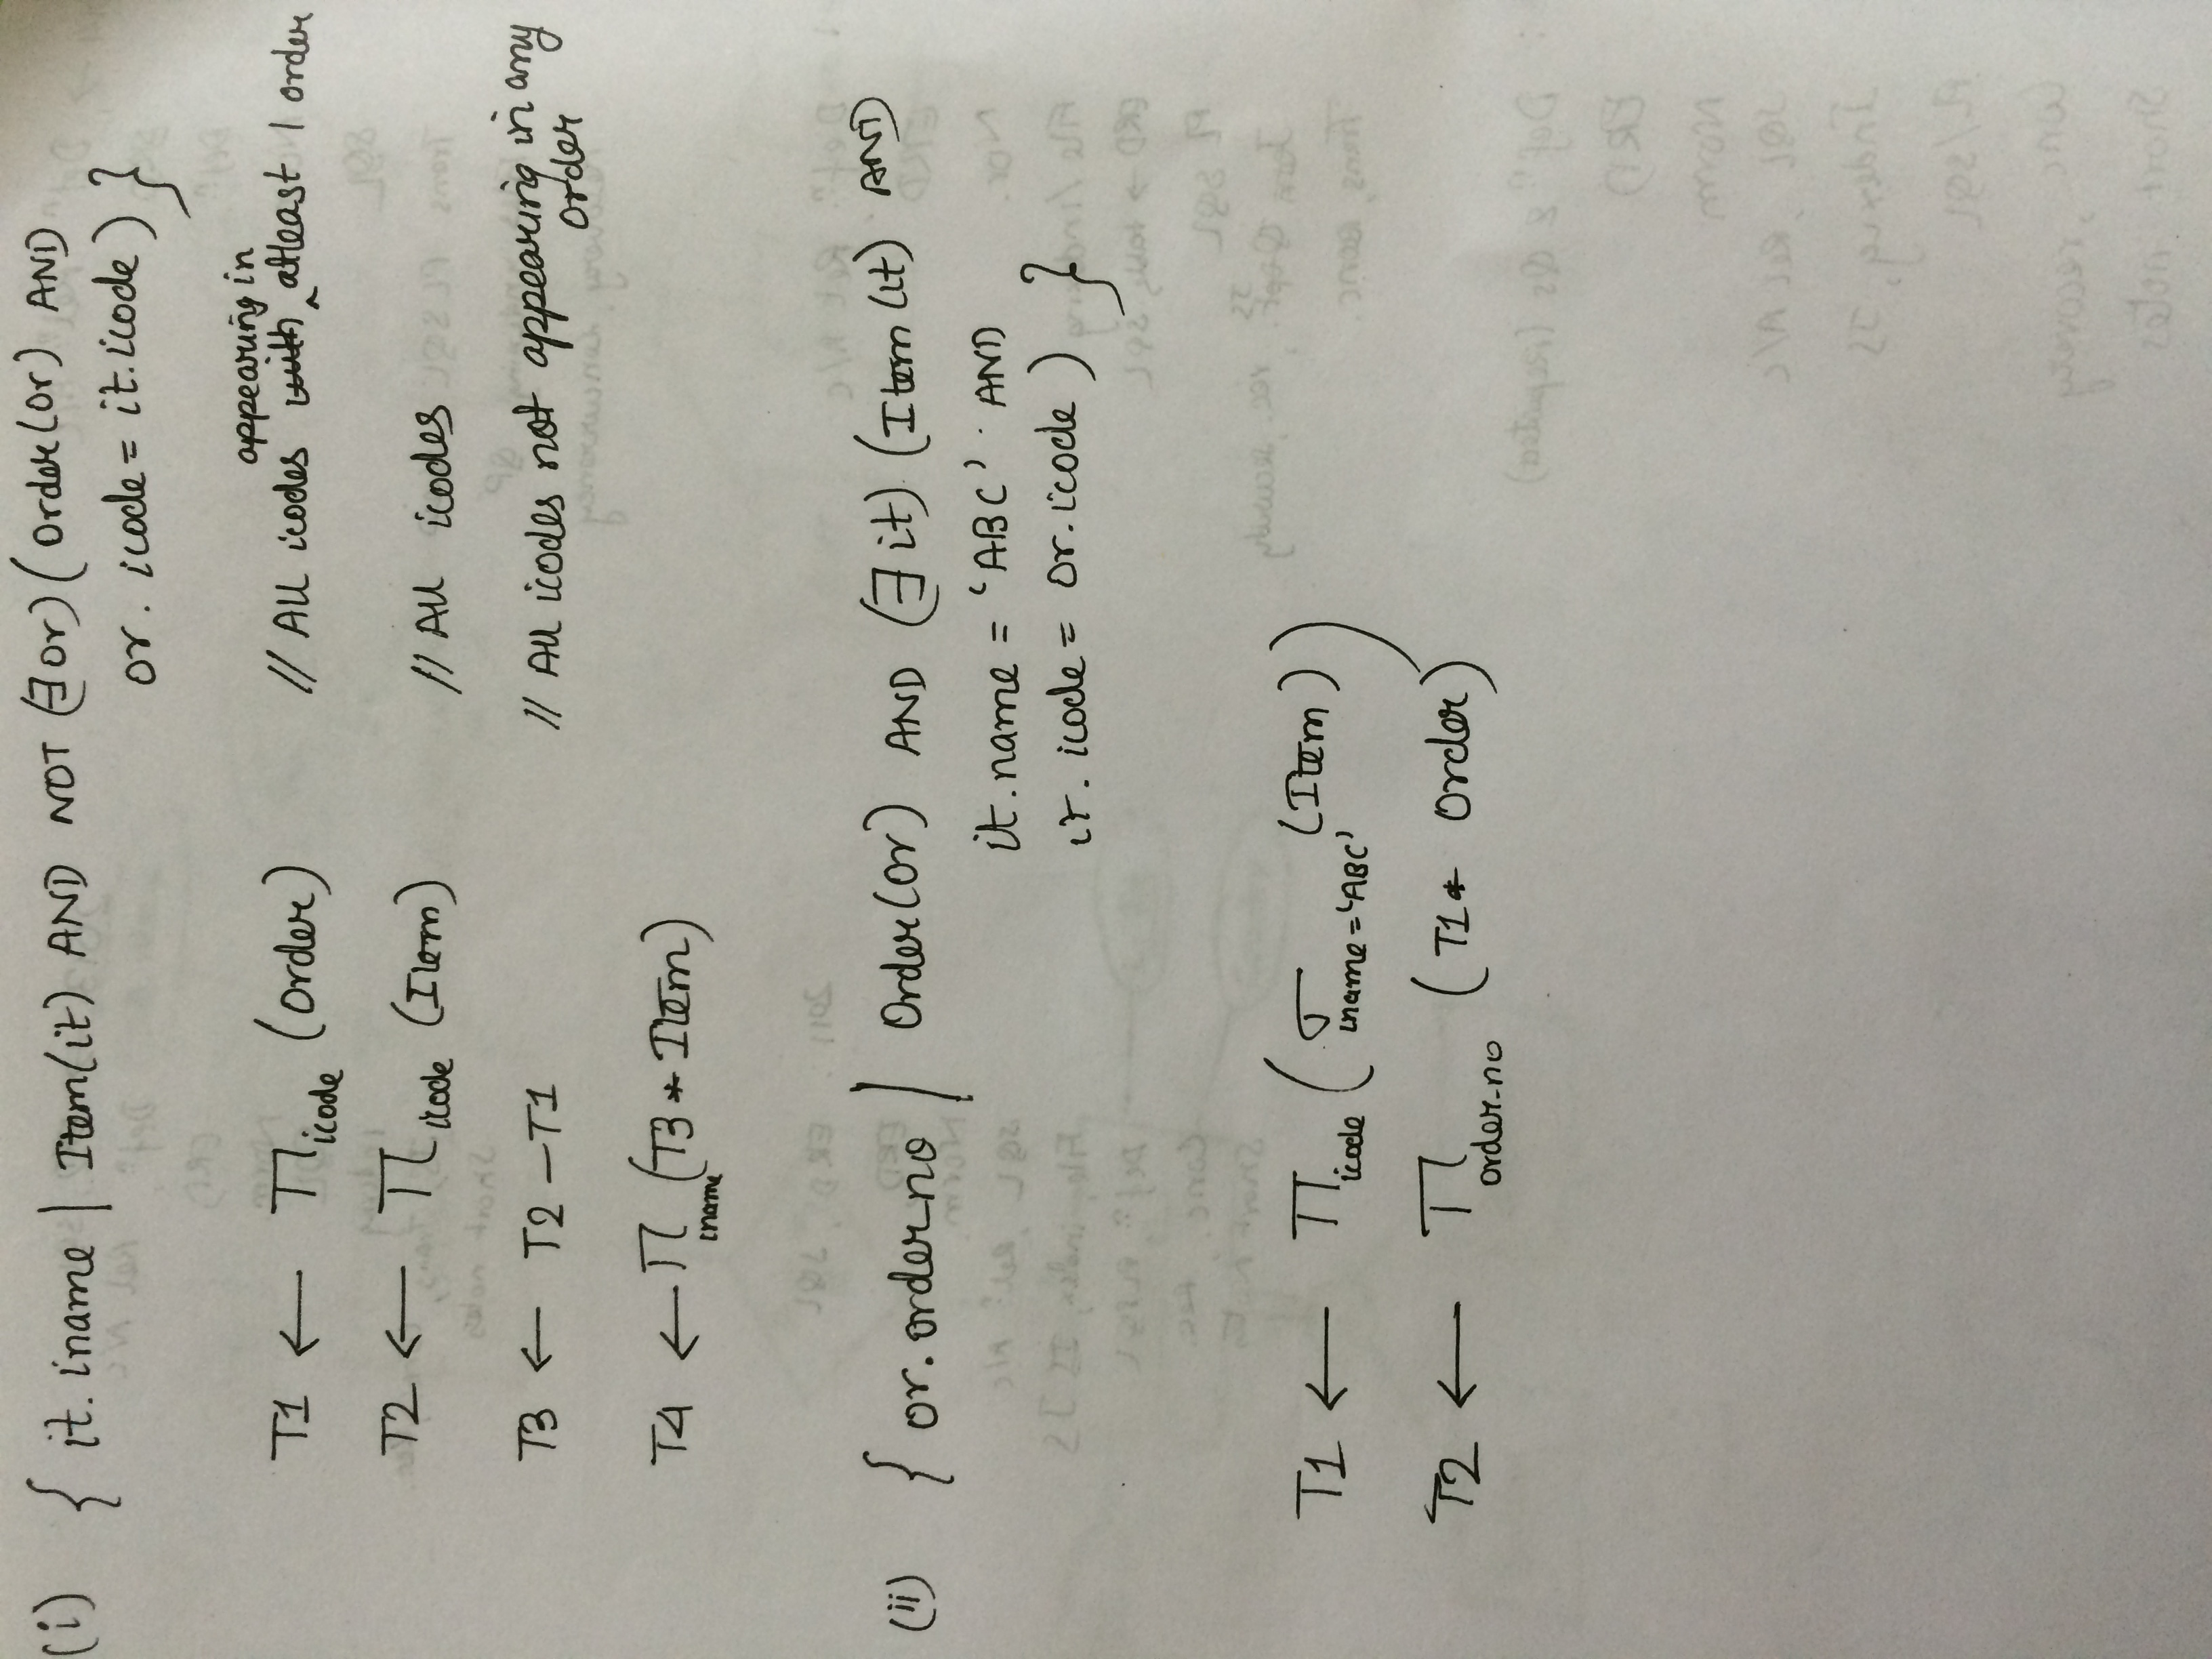 (i) { it. iname | Item(it) AND NOT (∃or) ( Order(or) AND
or. icode = it.icode ) }
appearing in
T1 ← Π icode (Order) // All icodes with ‸ atleast 1 order
T2 ← Π icode (Item) // All icodes
T3 ← T2 – T1 // All icodes not appearing in any
order
T4 ← Π iname (T3 * Item)
(ii) { or. order_no | Order(or) AND (∃ it) (Item (it) AND
it.name = 'ABC' AND
it. icode = or.icode ) }
T1 ← Π icode ( σ iname = 'ABC' (Item) )
T2 ← Π order_no ( T1 * Order)